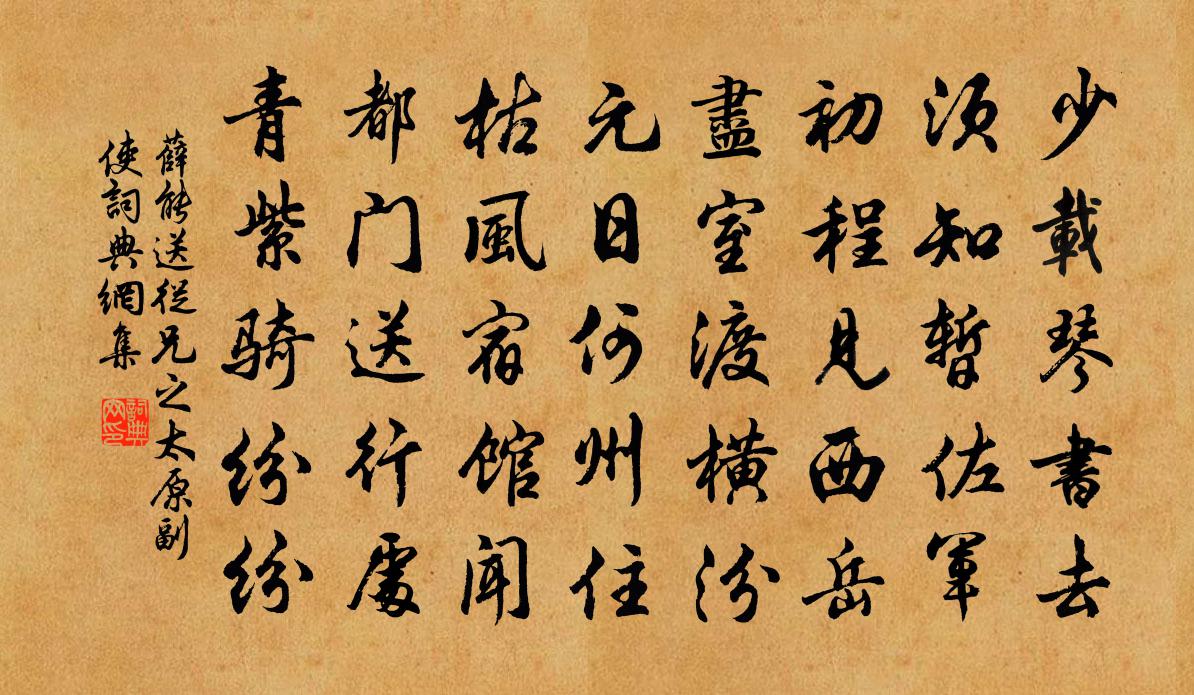 少載琴書去
須知暫佐軍
初程見西岳
盡室渡橫汾
元日何州住
枯風宿館聞
都门送行處
青紫骑紛紛
薛能送従兄之太原副
使詞典網集
詞典
网印